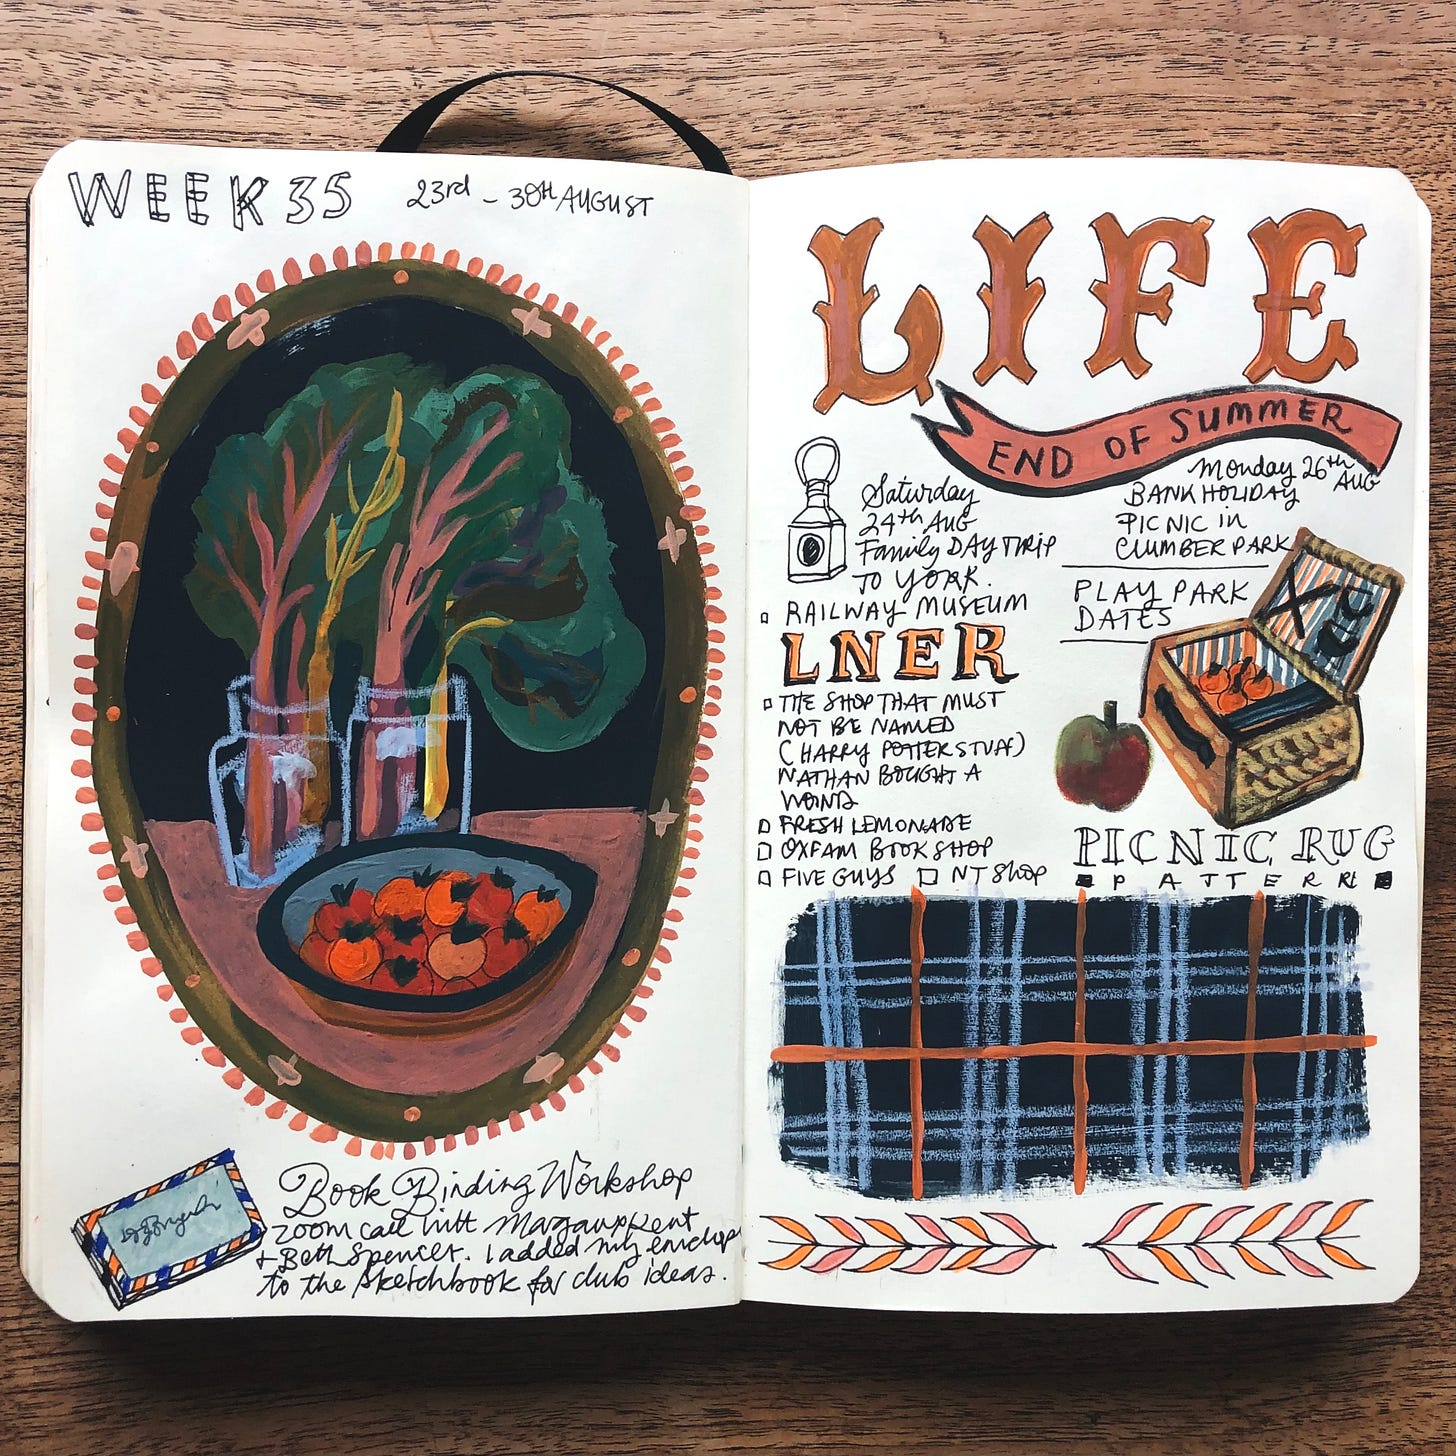 WEEK 35
23rd - 30th AUGUST
Book Binding Workshop
zoom call with
+ Beth Spencer. I added my envelope
to the sketchbook for club ideas.
LIFE
END OF SUMMER
Saturday
24th AUG
Family DAY TRIP
TO YORK.
RAILWAY MUSEUM
LNER
THE SHOP THAT MUST
NOT BE NAMED
(HARRY POTTER STUFF)
NATHAN BOUGHT A
WAND
FRESH LEMONADE
OXFAM BOOK SHOP
FIVE GUYS NT SHOP
Monday 26th AUG
BANK HOLIDAY
PICNIC in
CLUMBER PARK
PLAY PARK
DATES
PICNIC RUG
PATTERN